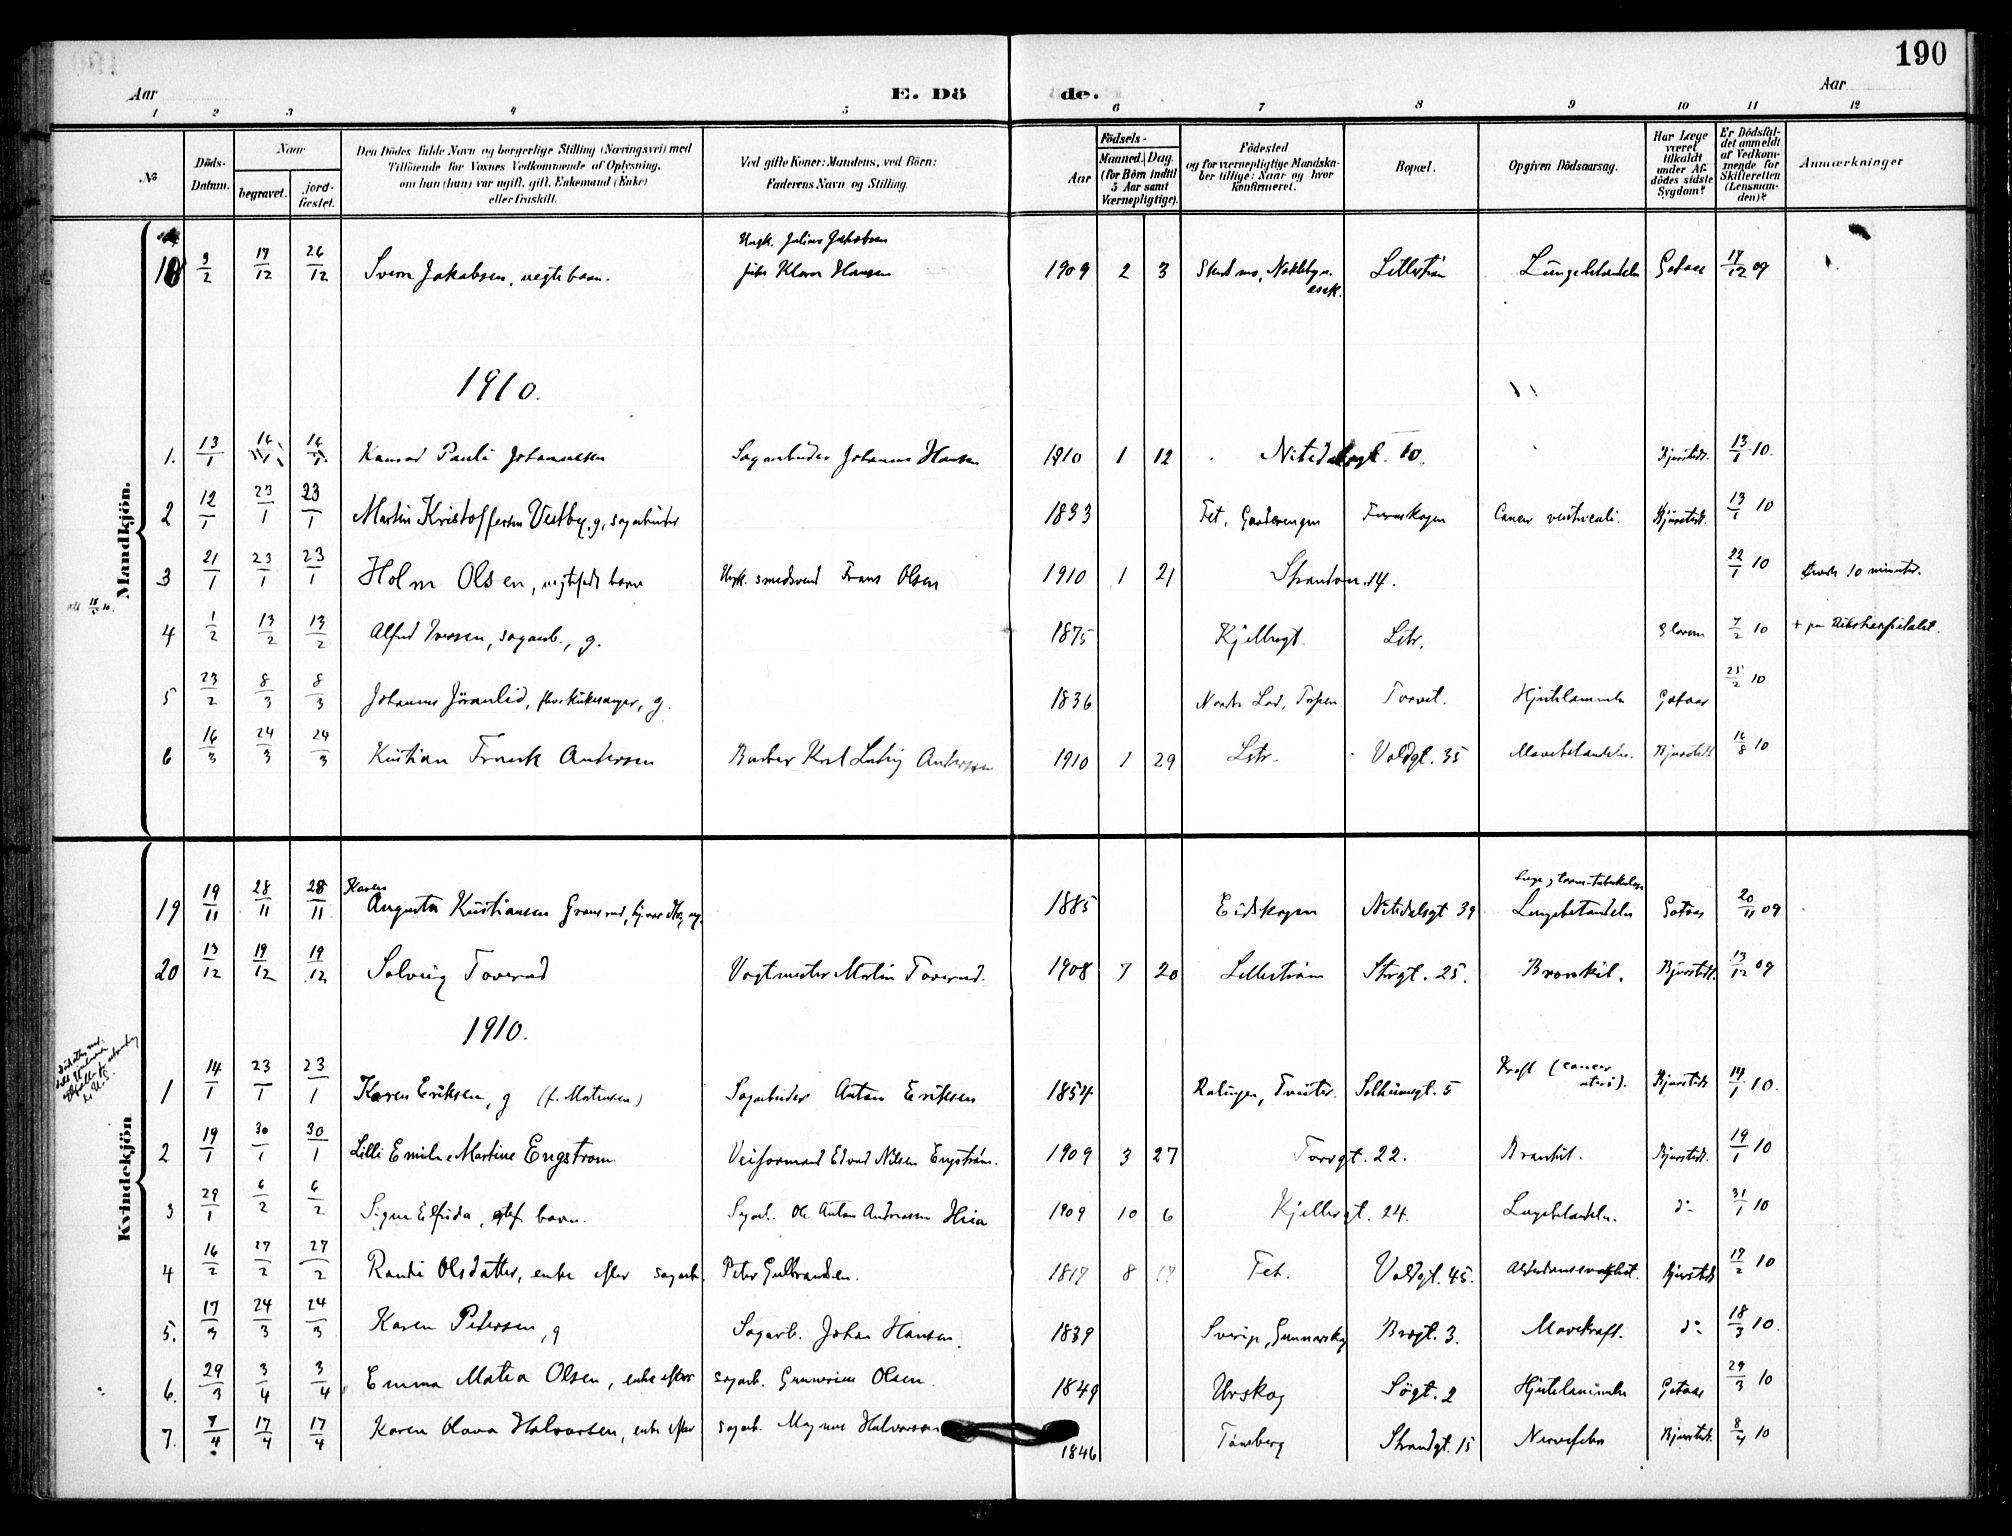 190
Aar
E. Dö de.
Aar
1 2 3 4 5 6 7 8 9 10 11 12
№
Döds-Datum.
Naar
begravet.
jord-fæstet.
Den Dödes fulde Navn og borgerlige Stilling (Næringsvei) med
Tilföiende for Voxnes Vedkommende af Oplysning,
om han (hun) var ugift, gift, Enkemand (Enke)
eller fraskilt.
Ved gifte Koner: Mandens, ved Börn:
Faderens Navn og Stilling.
Födsels-
Aar
Maaned. Dag.
(for Börn indtil
5 Aar samt
Værnepligtige).
Födested
og for værnepligtige Mandska-
ber tillige: Naar og hvor
konfirmeret.
Bopæl.
Opgiven Dödsaarsag.
Har Læge
været
tilkaldt
under Af-
dödes sidste
Sygdom?
Er Dödsfal-
det anmeldt
af Vedkom-
mende for
Skifteretten
(Lensman-
den)?
Anmærkninger
Mandkjön.
Ungk. Julius Jakobsen
17/12 26/12 Sverre Jakobsen, uegte barn. pike Klara Hansen 1909 2 3 Lillestrøm Gotaas 17/12 09
1910.
1. 13/1 Konrad Pauli Johannessen Sagarbeider Johannes Hansen 1910 1 12 Nitedalsgt. 10 Bjørstedt. 13/1 10.
2 12/1 23/1 23/1 Martin Kristoffersen Vestby, g, sagarbeider 1833 Fet, Furuskogen Cancer ventriculi. Bjørstedt. 13/1 10
3 21/1 23/1 23/1 Holm Olsen, uegtefødt barn Ungk. smedsvend Frans Olsen 1910 1 21 Strandgt. 14. 22/1 10 levede 10 minuter.
4 1/2 13/2 13/2 Alfred Iversen, sagarb., g. 1875 Kjellergt. Lstr. 7/2 10 + paa Rikshospitalet.
5 23/2 8/3 8/3 Johannes Jöranlid, forh. kirkesanger, g. 1836 Nordre Land, Torpen Torvet. Hjertelammelse Gotaas 25/2 10
6 16/3 24/3 24/3 Kristian Frank Andersen Barber Karl Ludvig Andersen 1910 1 29 Lstr. Voldgt. 35 Mavebetændelse. Bjørstedt 10
Kvindekjön
Karen
19 19/11 28/11 28/11 Augusta Kristiansen 1885 Eidskogen Nitedalsgt 39 Lungebetændelse Gotaas 20/11 09
20 13/12 19/12 19/12 Solveig Toverud Vogtmester Martin Toverud. 1908 7 20 Lillestrøm Storgt. 25. Bronkit. Bjørstedt. 13/12 09
1910.
1 14/1 23/1 23/1 Karen Eriksen, g (f. Mortensen) Sagarbeider Anton Eriksen 1854 Rælingen, Tveiter. Solheimsgt. 5 Kræft (cancer uteri). Bjørstedt 14/1 10.
2 19/1 30/1 30/1 Lilli Emilie Martine Engstrøm Veiformand Edvard Nilsen Engstrøm. 1909 3 27 Torvgt. 22. Bronkit. Bjørstedt. 19/1 10
3 29/1 6/2 6/2 Signe Elfrida, barn. Sagarb. Ole Anton Andreassen 1909 10 6 Kjellergt. 24. Lungebetændelse. do 31/1 10
4 16/2 27/2 27/2 Randi Olsdatter, enke efter sagarb. Peter Gulbrandsen. 1817 8 Fet. Voldgt. 45. Alderdomssvaghet. Bjørstedt 17/2 10
5. 17/3 24/3 24/3 Karen Pedersen, g Sagarb. Johan Hansen. 1839 Sverige, Gunnarskog Brogt. 3. Mavekræft. do 18/3 10.
6. 29/3 3/4 3/4 Emma Matea Olsen, enke efter sagarb. Gunnerius Olsen. 1849 Urskog Søgt. 2 Hjertelammelse Gotaas 29/3 10
7. 7/4 17/4 17/4 Karen Olava Halvorsen, enke efter sagarb. Magnus Halvorsen 1846 Tønsberg Strandgt. 15 Nervefeber Bjørstedt. 8/4 10